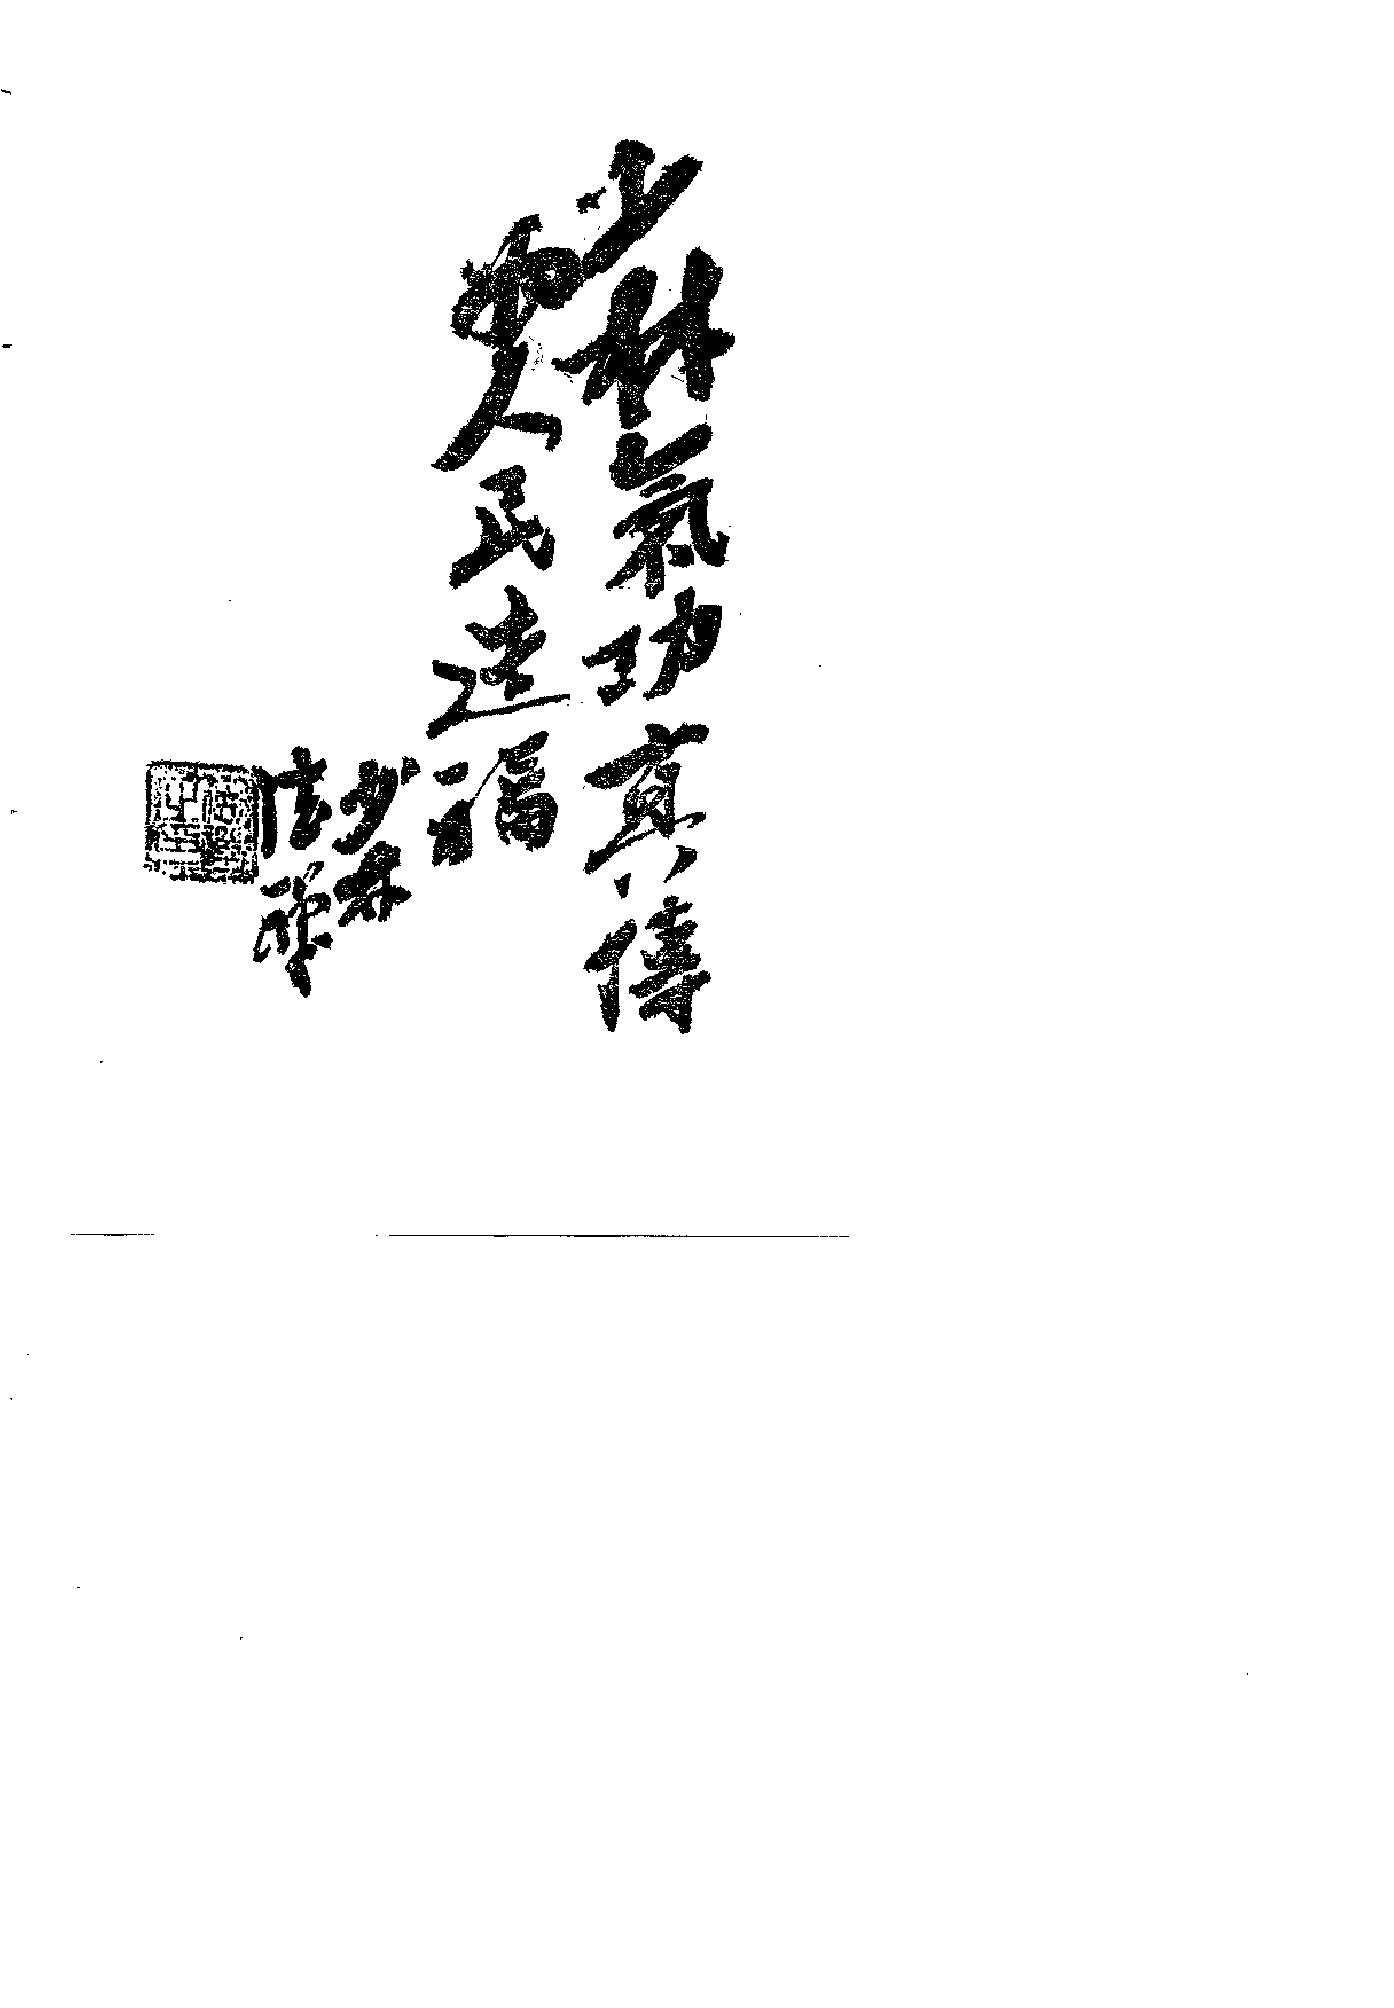 少林氣功真傳
為人民造福
少林